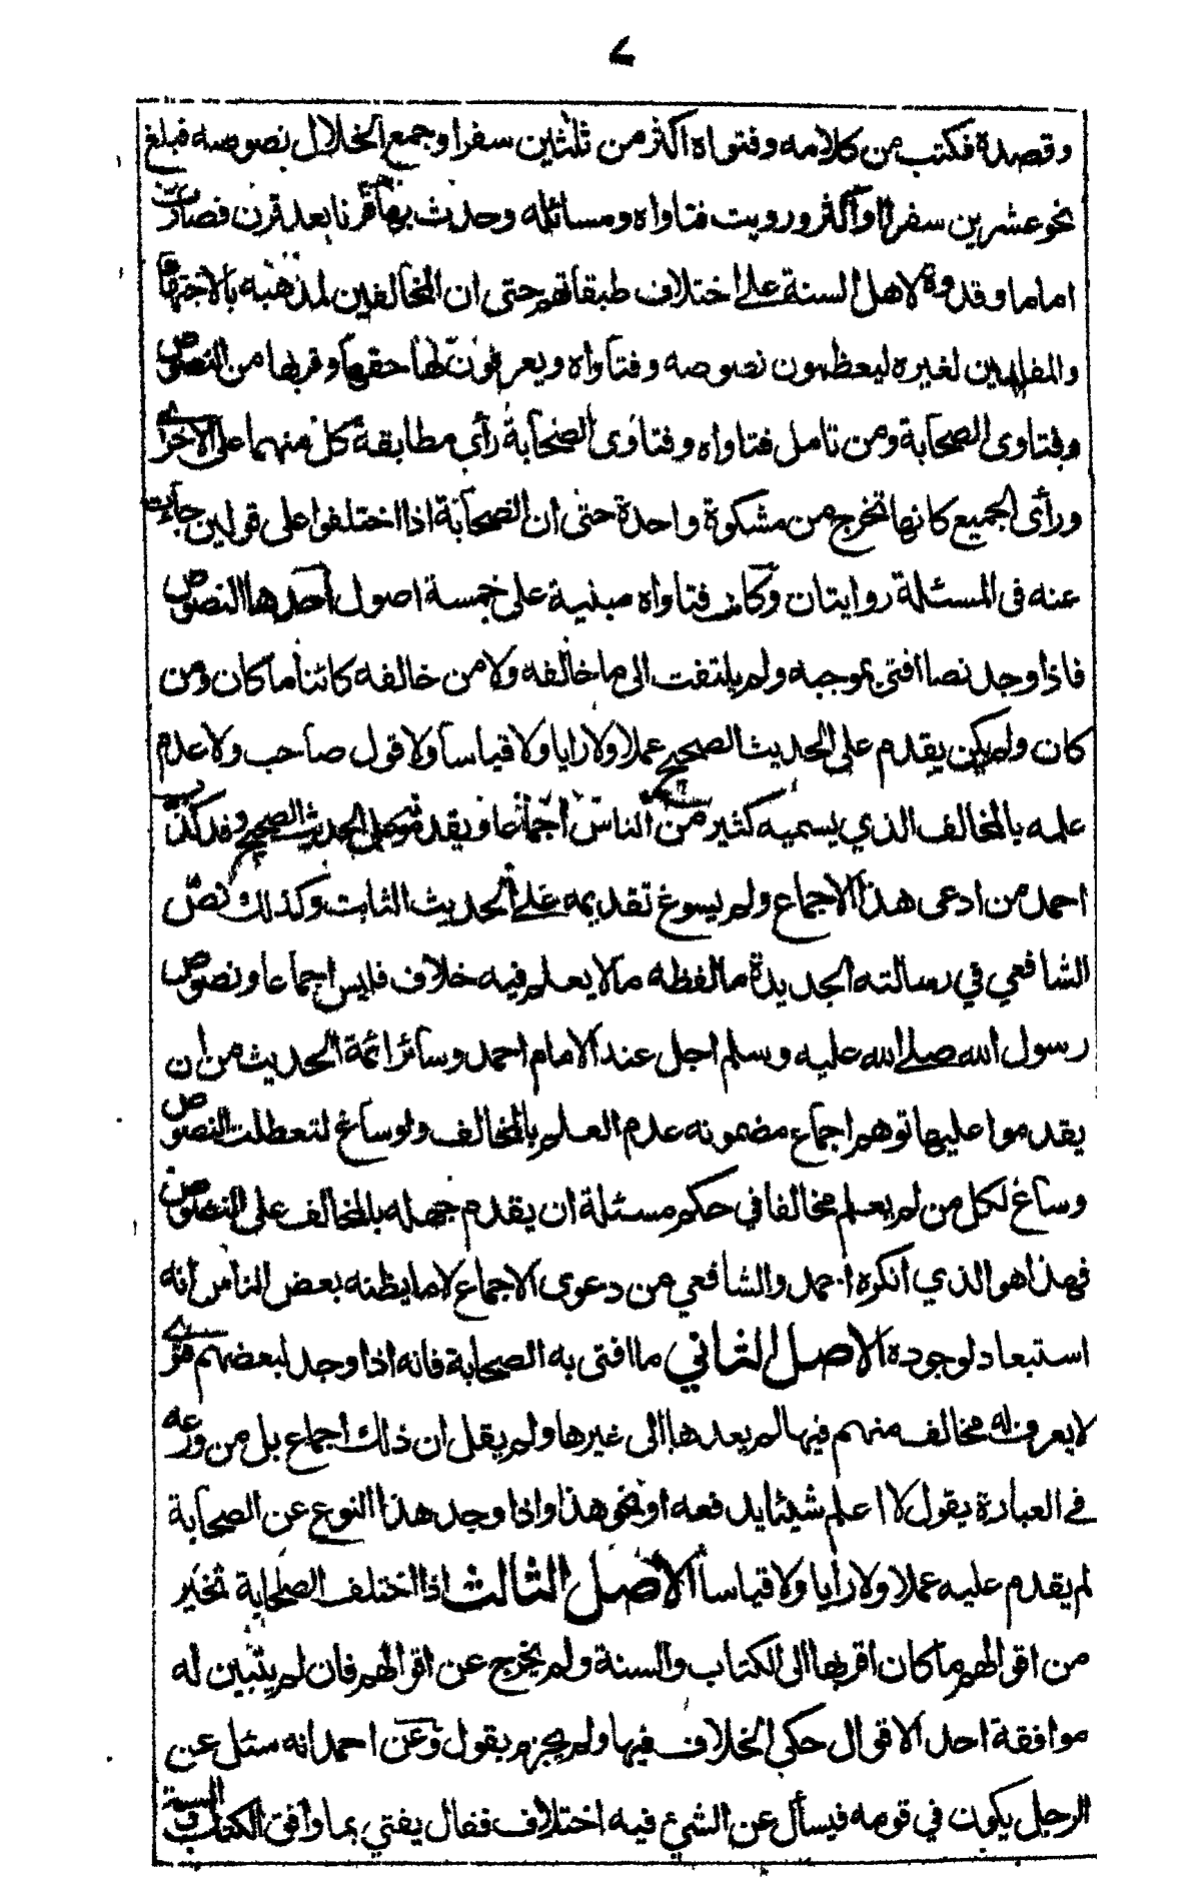 ٧
وقصده فكتب من كلامه وفتواه اكثر من ثلثين سفرا وجمع الخلال نصوصه فبلغ
نحو عشرين سفرا او اكثر ورويت فتاواه ومسائله وحدث بها قرنا بعد قرن فصارت
اماما وقدوة لاهل السنة على اختلاف طبقاتهم حتى ان المخالفين لمذهبه بالاجتهاد
والمقلدين لغيره ليعظمون نصوصه وفتاواه ويعرفون لها حقها وقربها من النصوص
وفتاوى الصحابة ومن تامل فتاواه وفتاوى الصحابة رأى مطابقة كل منهما على الاخرى
ورأى الجميع كانها تخرج من مشكوة واحدة حتى ان الصحابة اذا اختلفوا على قولين جاءت
عنه فى المسئلة روايتان وكانت فتاواه مبنية على خمسة اصول احدها النصوص
فاذا وجد نصا افتى بموجبه ولم يلتفت الى ما خالفه ولا من خالفه كائنا ما كان ومن
كان ولم يكن يقدم على الحديث الصحيح عملا ولا رايا ولا قياسا ولا قول صاحب ولا عدم
علمه بالمخالف الذي يسميه كثير من الناس اجماعا ويقدمونه على الحديث الصحيح وقد كذب
احمد من ادعى هذا الاجماع ولم يسوغ تقديمه على الحديث الثابت وكذلك نص
الشافعي في رسالته الجديدة ما لفظه مالا يعلم فيه خلاف فليس اجماعا ونصوص
رسول الله صلى الله عليه وسلم اجل عند الامام احمد وسائر ائمة الحديث من ان
يقدموا عليها توهم اجماع مضمونه عدم العلم بالمخالف ولو ساغ لتعطلت النصوص
وساغ لكل من لم يعلم مخالفا في حكم مسئلة ان يقدم جهله بالمخالف على النصوص
فهذا هو الذي انكره احمد والشافعي من دعوى الاجماع لا ما يظنه بعض الناس انه
استبعاد لوجوده الاصل الثاني ما افتى به الصحابة فانه اذا وجد لبعضهم فتوى
لا يعرف له مخالف منهم فيها لم يعدها الى غيرها ولم يقل ان ذلك اجماع بل من ورعه
في العبارة يقول لا اعلم شيئا يدفعه او نحو هذا واذا وجد هذا النوع عن الصحابة
لم يقدم عليه عملا ولا رأيا ولا قياسا الاصل الثالث اذا اختلف الصحابة تخير
من اقوالهم ما كان اقربها الى الكتاب والسنة ولم يخرج عن اقوالهم فان لم يتبين له
موافقة احد الاقوال حكى الخلاف فيها ولم يجزم بقول وعن احمد انه سئل عن
الرجل يكون في قومه فيسأل عن الشئ فيه اختلاف فقال يفتي بما وافق الكتاب والسنة